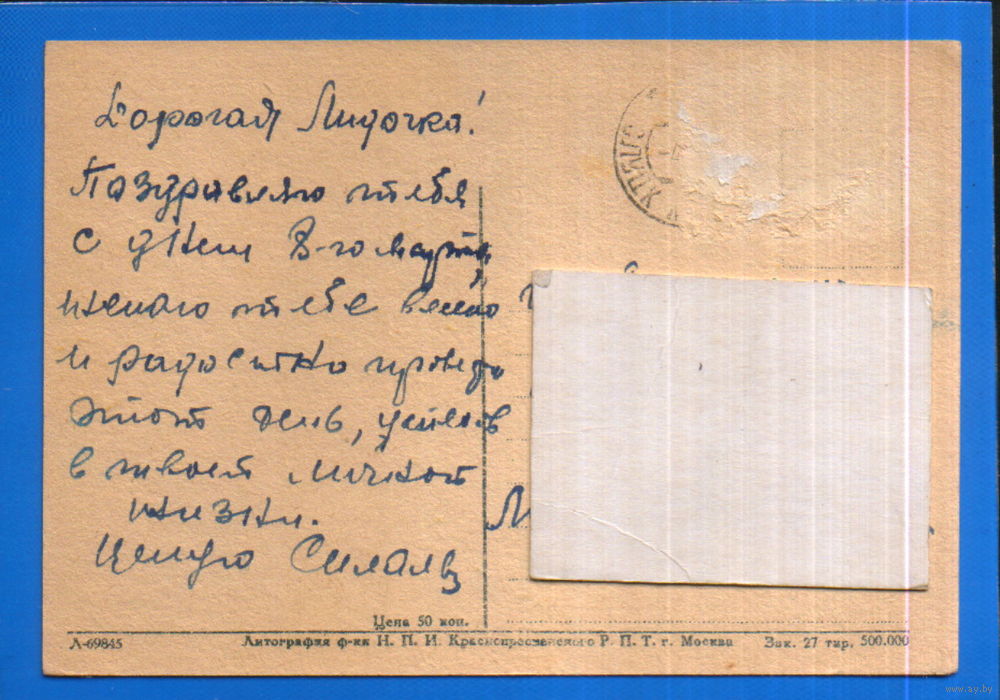 Дорогая Лидочка!
Паздравляю тебя
с днем 8-го марта,
желаю тебе весело
и радостно провести
этот день, успехов
в твоей личной
жизни.
Целую
Цена 50 коп.
А-69845 Литография ф-ки Н. П. И. Краснопресненского Р. П. Т. г. Москва Зак. 27 тир. 500.000
www.ay.by